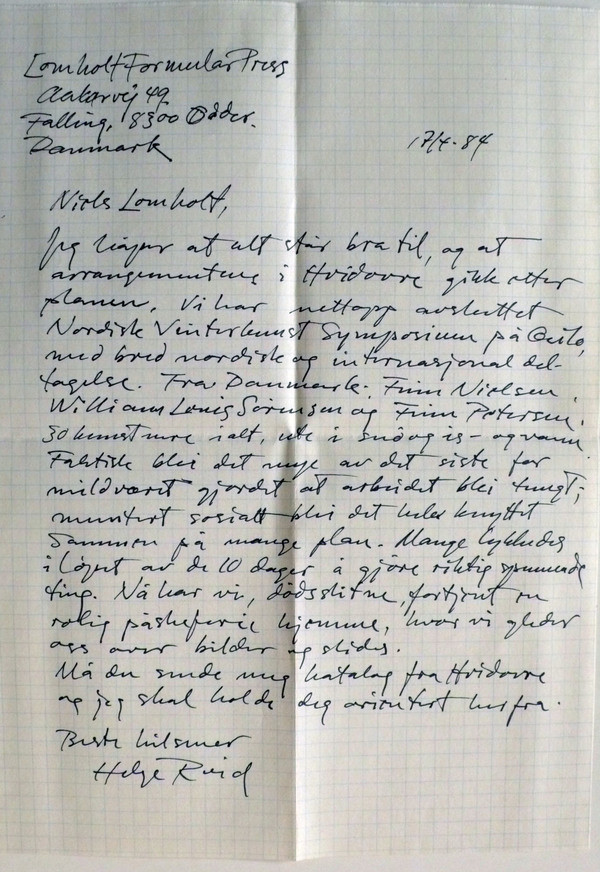 Lomholt Formular Press
Aakærvej 49
Falling, 8300 Odder.
Danmark
17/4-84
Niels Lomholt,
Jeg håper at alt står bra til, og at
arrangementene i Hvidovre gikk etter
planen. Vi har nettopp avsluttet
Nordisk Vinterkunst Symposium på Geilo,
med bred nordisk og internasjonal del-
tagelse. Fra Danmark: Finn Nielsen,
William Louis Sørensen og Finn Petersen.
30 kunstnere i alt, ute i snö og is - og vann.
Faktisk blei det mye av det siste for
mildværet gjorde at arbeidet blei tungt;
sosialt blei det hele knyttet
sammen på mange plan. Mange lykkedes
i löpet av de 10 dager å gjöre riktig spennende
ting. Nå har vi, dödsslitne, fortjent en
rolig påskeferie hjemme, hvor vi gleder
oss over bilder og slides.
Må du sende meg katalog fra Hvidovre
og jeg skal holde deg orientert herfra.
Beste hilsener
Helge Röed